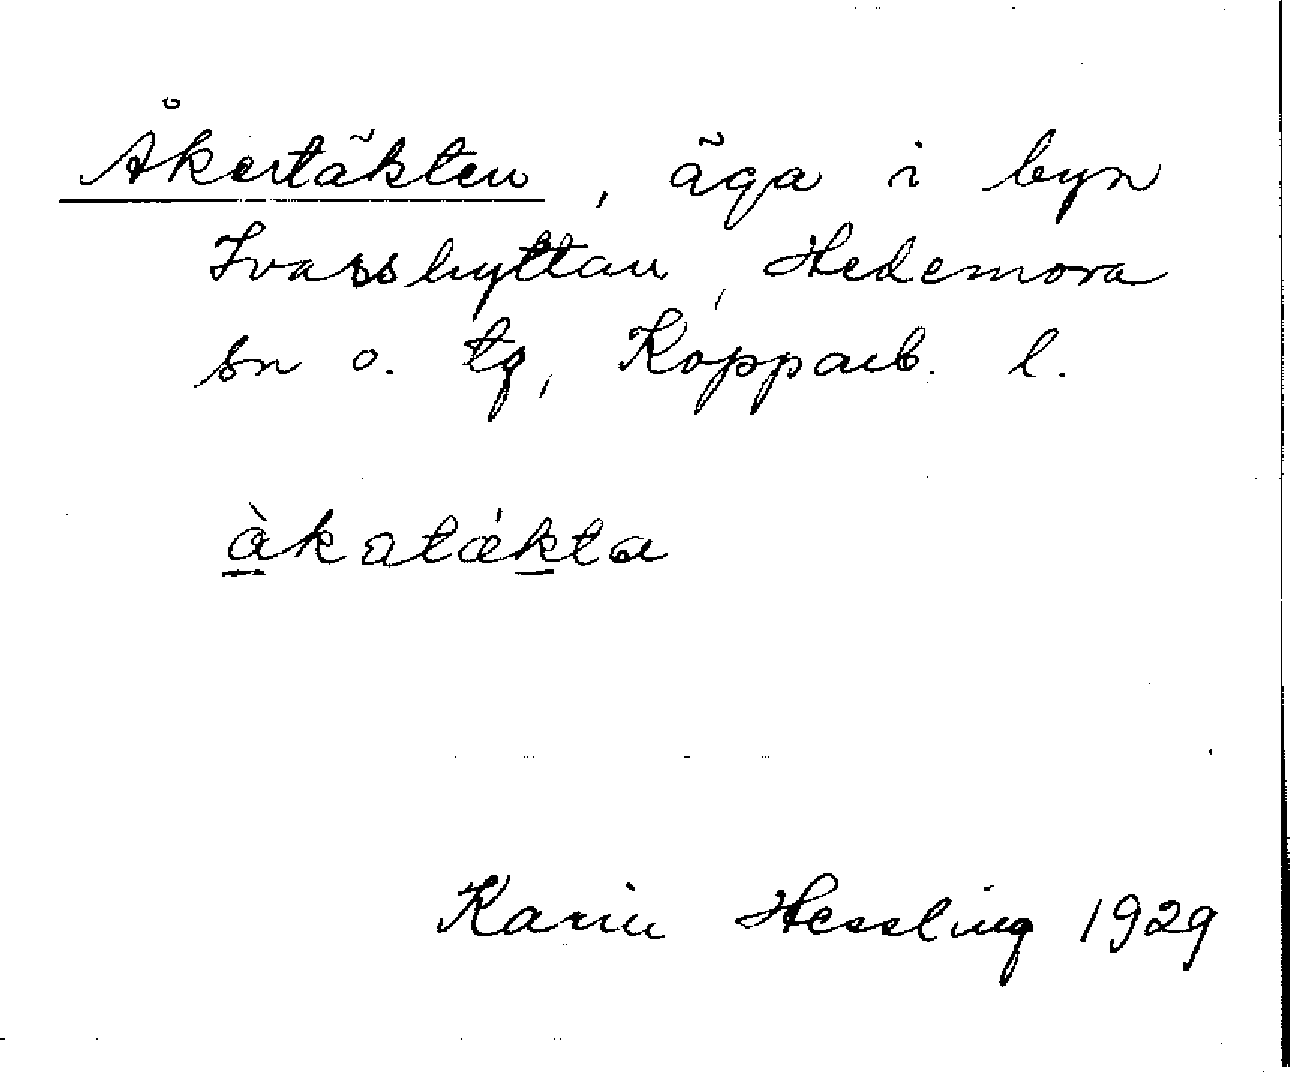 Åkertäkten, äga i byn
Ivarsshyttan, Hedemora
sn o. tg, Kopparb. l.
àkatǽkta
Karin Hessling 1929